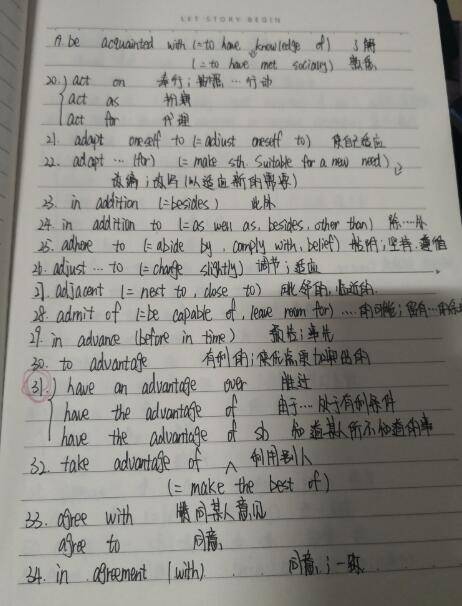 LET STORY BEGIN
19. be acquainted with (=to have knowledge of) 了解
(=to have met socially) 熟悉
20. act on 奉行；根据…行动
act as 扮演
act for 代理
21. adapt oneself to (=adjust oneself to) 使自己适应
22. adapt … (for) (=make sth. suitable for a new need)
改编；改写(以适应新的需要)
23. in addition (=besides) 此外
24. in addition to (=as well as, besides, other than) 除…外
25. adhere to (=abide by, comply with, belief) 粘附；坚持，遵循
26. adjust … to (=change slightly) 调节；适应
27. adjacent (=next to, close to) 毗邻的，临近的
28. admit of (=be capable of, leave room for) …的可能；留有…的
29. in advance (before in time) 预告；事先
30. to advantage 有利的；使优点更加突出的
31. have an advantage over 胜过
have the advantage of 由于…处于有利条件
have the advantage of sb 知道某人所不知道的事
32. take advantage of 利用别人
(=make the best of)
33. agree with 赞同某人意见
agree to 同意
34. in agreement (with) 同意；一致